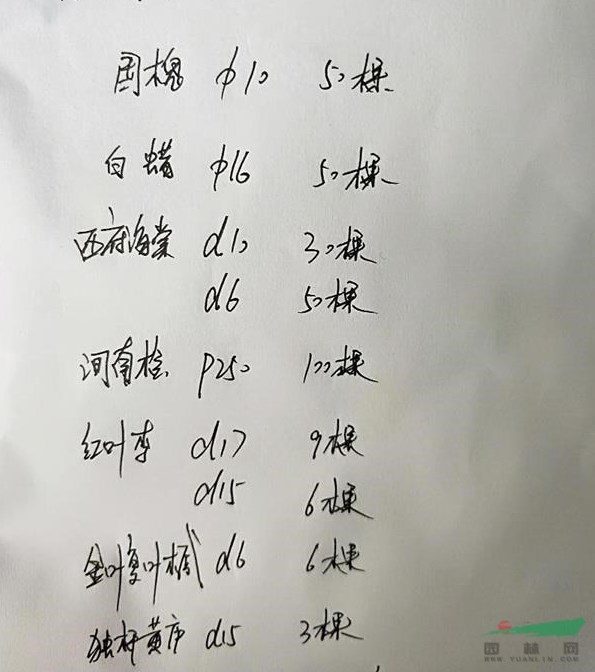 国槐 φ10 50棵
白蜡 φ16 50棵
西府海棠 d10 30棵
d6 50棵
河南桧 P250 100棵
红叶李 d17 9棵
d15 6棵
金叶复叶槭 d6 6棵
独杆黄庐 d15 3棵
园林网
WWW.YUANLIN.COM